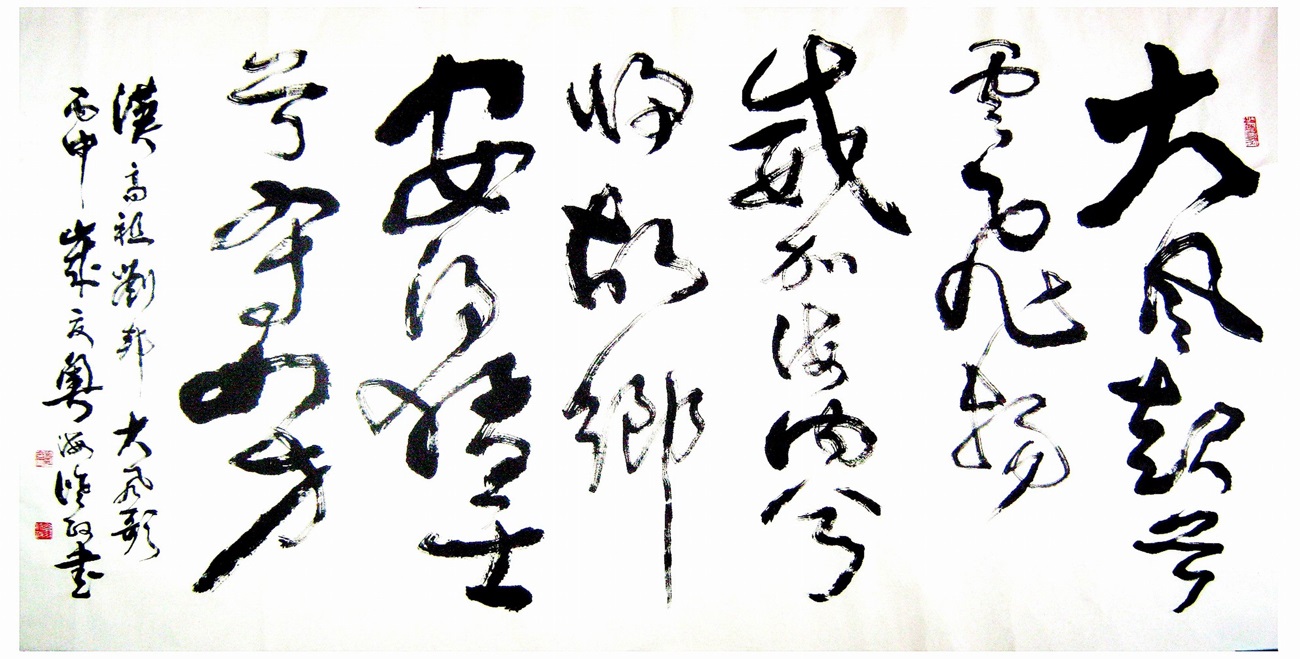 大风起兮
雲飞扬
威加海内兮
归故鄉
安得猛士
兮守四方
漢高祖劉邦大风歌
丙申歲夏粤海书